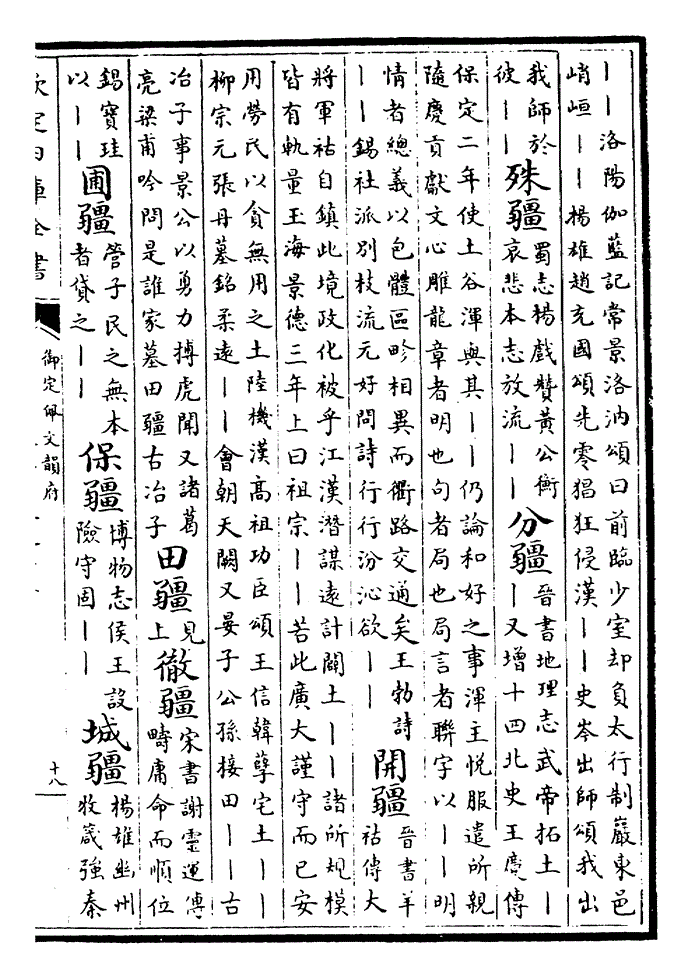 丨丨洛陽伽藍記常景洛汭頌曰前臨少室却負太行制巖東邑
峭峘丨丨楊雄趙充國頌先零猖狂侵漢丨丨史岑出師頌我出
我師於
彼丨丨
殊疆
蜀志楊戲贊黃公衡
哀悲本志放流丨丨
分疆
晉書地理志武帝拓土丨
丨又增十四北史王廣傳
保定二年使土谷渾與其丨丨仍論和好之事渾主悅服遣所親
隨慶貢獻文心雕龍章者明也句者局也局言者聯字以丨丨明
情者總義以包體區畛相異而衢路交通矣王勃詩
丨丨錫社派別枝流元好問詩行行汾沁欲丨丨
開疆
晉書羊
祜傳大
將軍祜自鎮此境政化被乎江漢潛謀遠計闢土丨丨諸所規模
皆有軌量玉海景德三年上曰祖宗丨丨若此廣大謹守而已安
用勞民以貪無用之土陸機漢高祖功臣頌王信韓孽宅土丨丨
柳宗元張丹墓銘柔遠丨丨會朝天闕又晏子公孫接田丨丨古
冶子事景公以勇力搏虎聞又諸葛
亮梁甫吟問是誰家墓田疆古冶子
田疆
見
上
徹疆
宋書謝靈運傳
疇庸命而順位
錫寶珪
以丨丨
圃疆
管子民之無本
者貸之丨丨
保疆
博物志侯王設
險守固丨丨
城疆
楊雄幽州
牧箴強秦
欽定四庫全書
御定佩文韻府
十八